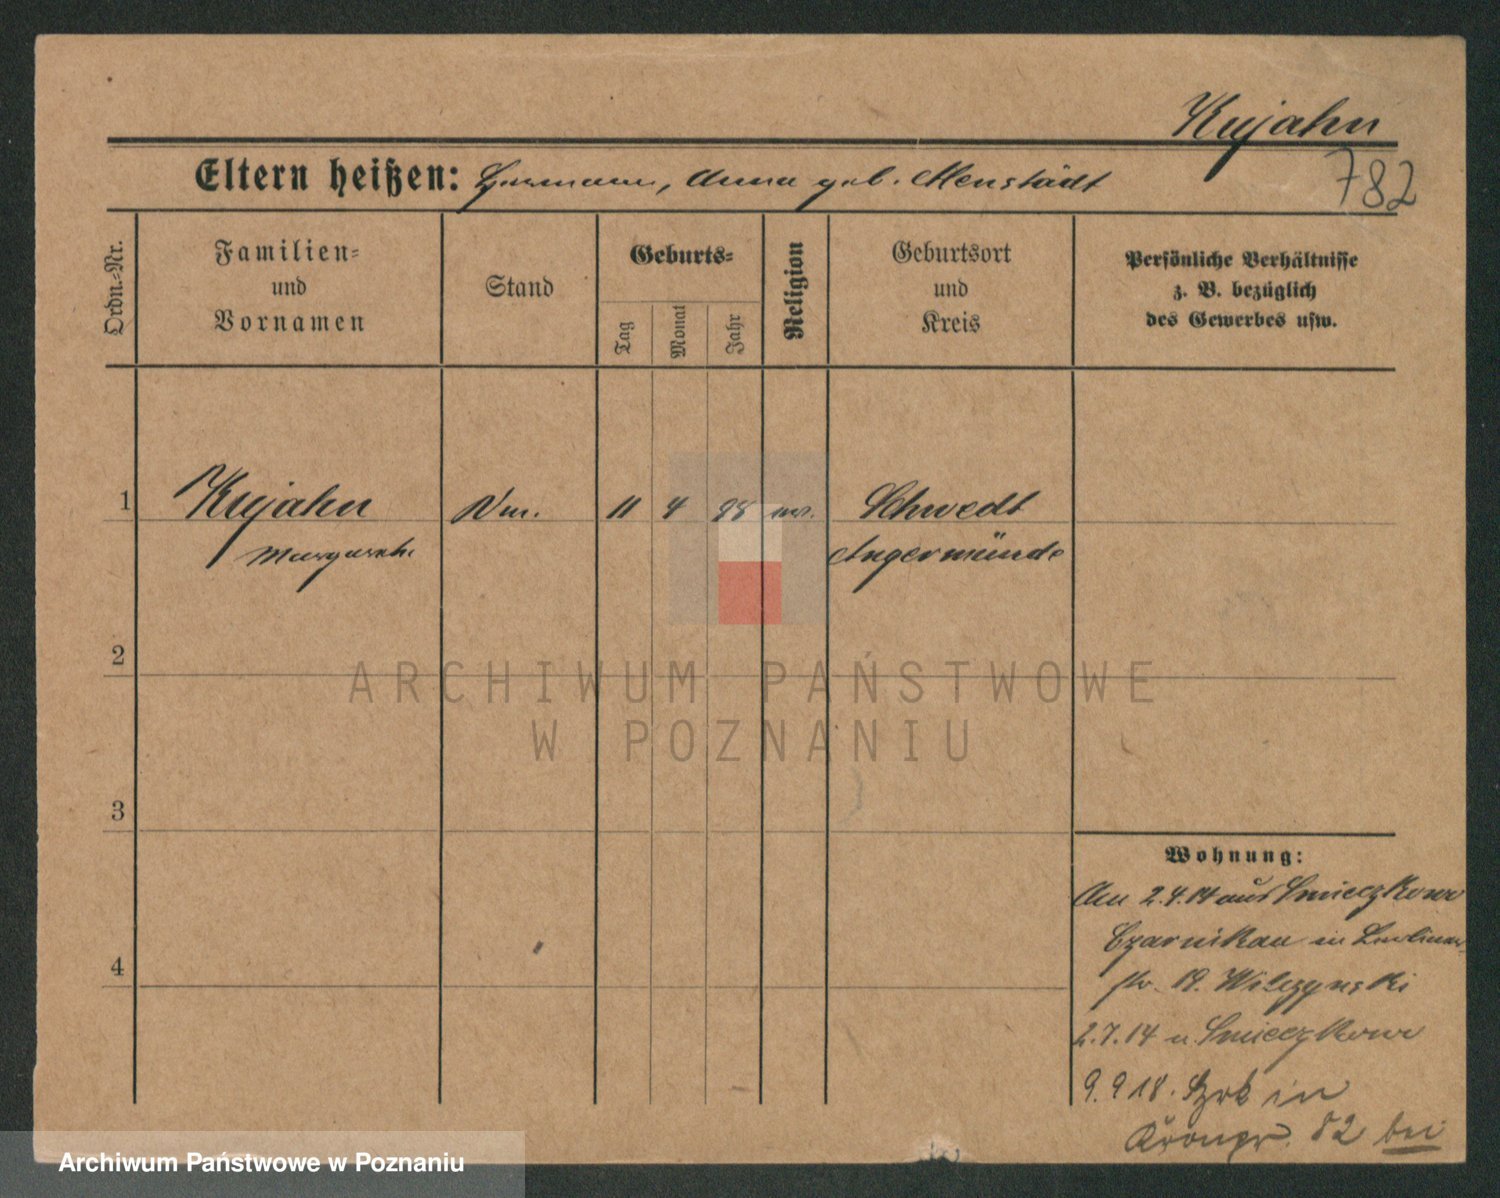 Kujahn
782
Eltern heißen: Hermann, Anna geb. Menstädt
Ordn.-Nr.
Familien-
und
Vornamen
Stand
Geburts-
Tag
Monat
Jahr
Religion
Geburtsort
und
Kreis
Persönliche Verhältnisse
z. B. bezüglich
des Gewerbes usw.
1 Kujahn 11 4 98 Schwedt
Margarete Angermünde
2
ARCHIWUM PAŃSTWOWE
W POZNANIU
3
Wohnung:
2.4.14 aus Smieczkowo
Czarnikau in Berliner
str. 19. Wilczynski
2.7.14 n. Smieczkowo
9.9.18. in
Kronpr. 82 bei
4
Archiwum Państwowe w Poznaniu